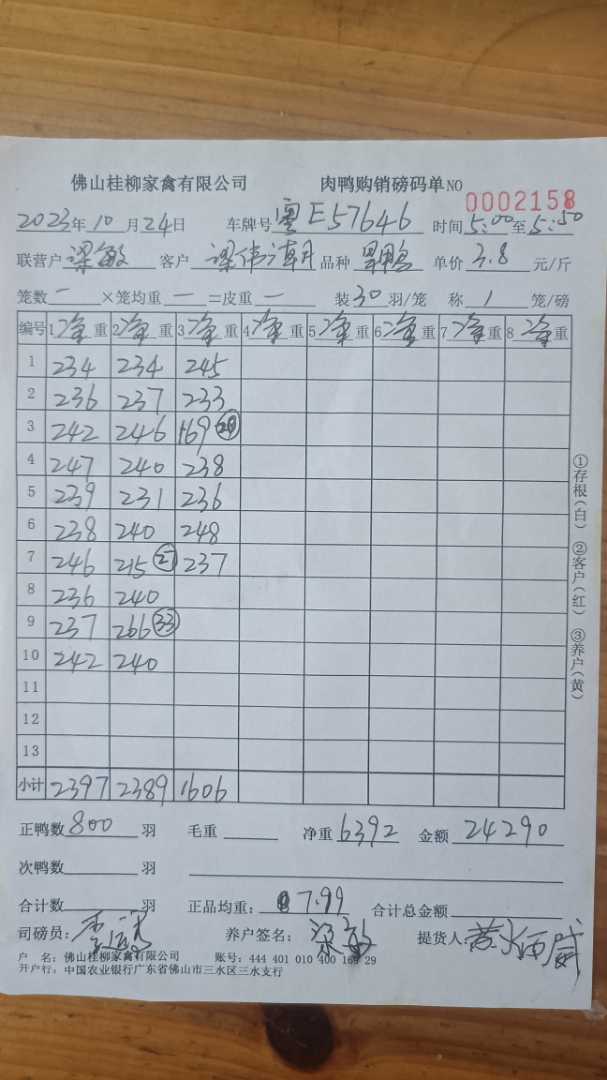 佛山桂柳家禽有限公司 肉鸭购销磅码单NO 0002158
2023年10月24日 车牌号粤E57646 时间5:00至5:50
联营户梁敏 客户梁伟 品种 单价3.8元/斤
笼数一×笼均重一=皮重一 装30羽/笼 称1笼/磅
编号 1净重 2净重 3净重 4净重 5净重 6净重 7净重 8净重
1 234 234 245
2 236 237 233
3 242 246 169
4 247 240 238
5 239 231 236
6 238 240 248
7 246 215 27 237
8 236 240
9 237 266 33
10 242 240
11
12
13
小计 2397 2389 1606
①存根(白) ②客户(红) ③养户(黄)
正鸭数800羽 毛重 净重6392 金额24290
次鸭数 羽
合计数 羽 正品均重:7.99 合计总金额
司磅员: 养户签名:梁敏 提货人:
户 名:佛山桂柳家禽有限公司 账号:444 401 010 400 29
开户行:中国农业银行广东省佛山市三水区三水支行